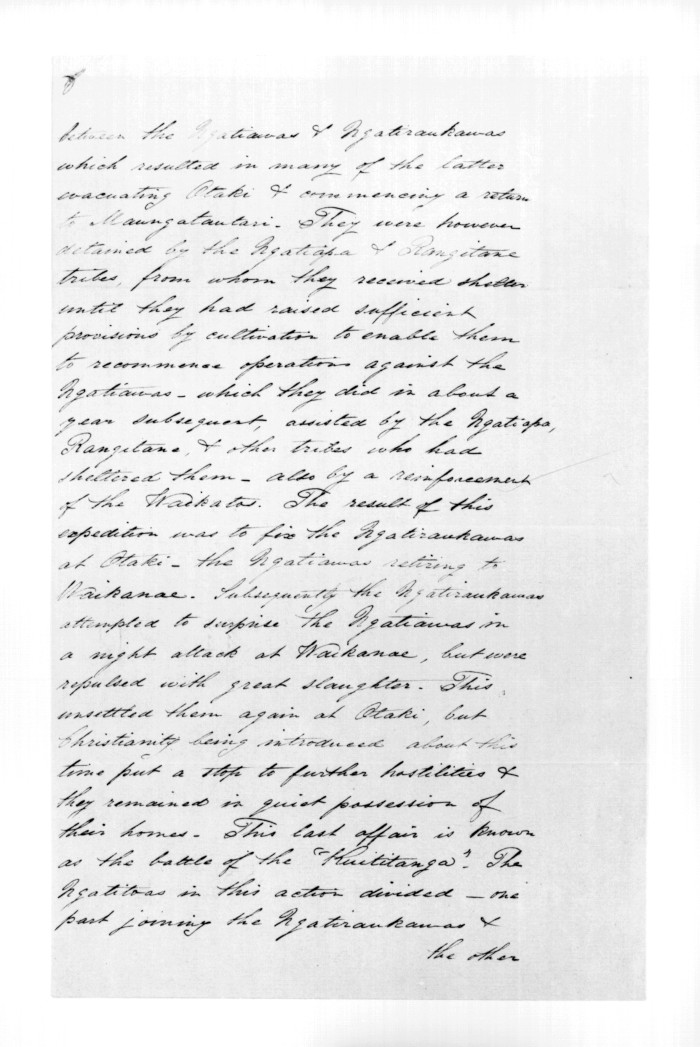 8
between the Ngatiawas & Ngatiraukawas
which resulted in many of the latter
evacuating Otaki & commencing a return
to Maungatautari. They were however
detained by the Ngatiapa & Rangitane
tribes, from whom they received shelter
until they had raised sufficient
provisions by cultivation to enable them
to recommence operations against the
Ngatiawas - which they did in about a
year subsequent, assisted by the Ngatiapa,
Rangitane, & other tribes who had
sheltered them - also by a reinforcement
of the Waikatos. The result of this
expedition was to fix the Ngatiraukawas
at Otaki - the Ngatiawas retiring to
Waikanae. Subsequently the Ngatiraukawas
attempted to surprise the Ngatiawas in
a night attack at Waikanae, but were
repulsed with great slaughter. This
unsettled them again at Otaki, but
Christianity being introduced about this
time put a stop to further hostilities &
they remained in quiet possession of
their homes. This last affair is known
as the battle of the "Kuititanga". The
Ngatitoas in this action divided - one
part joining the Ngatiraukawas &
the other